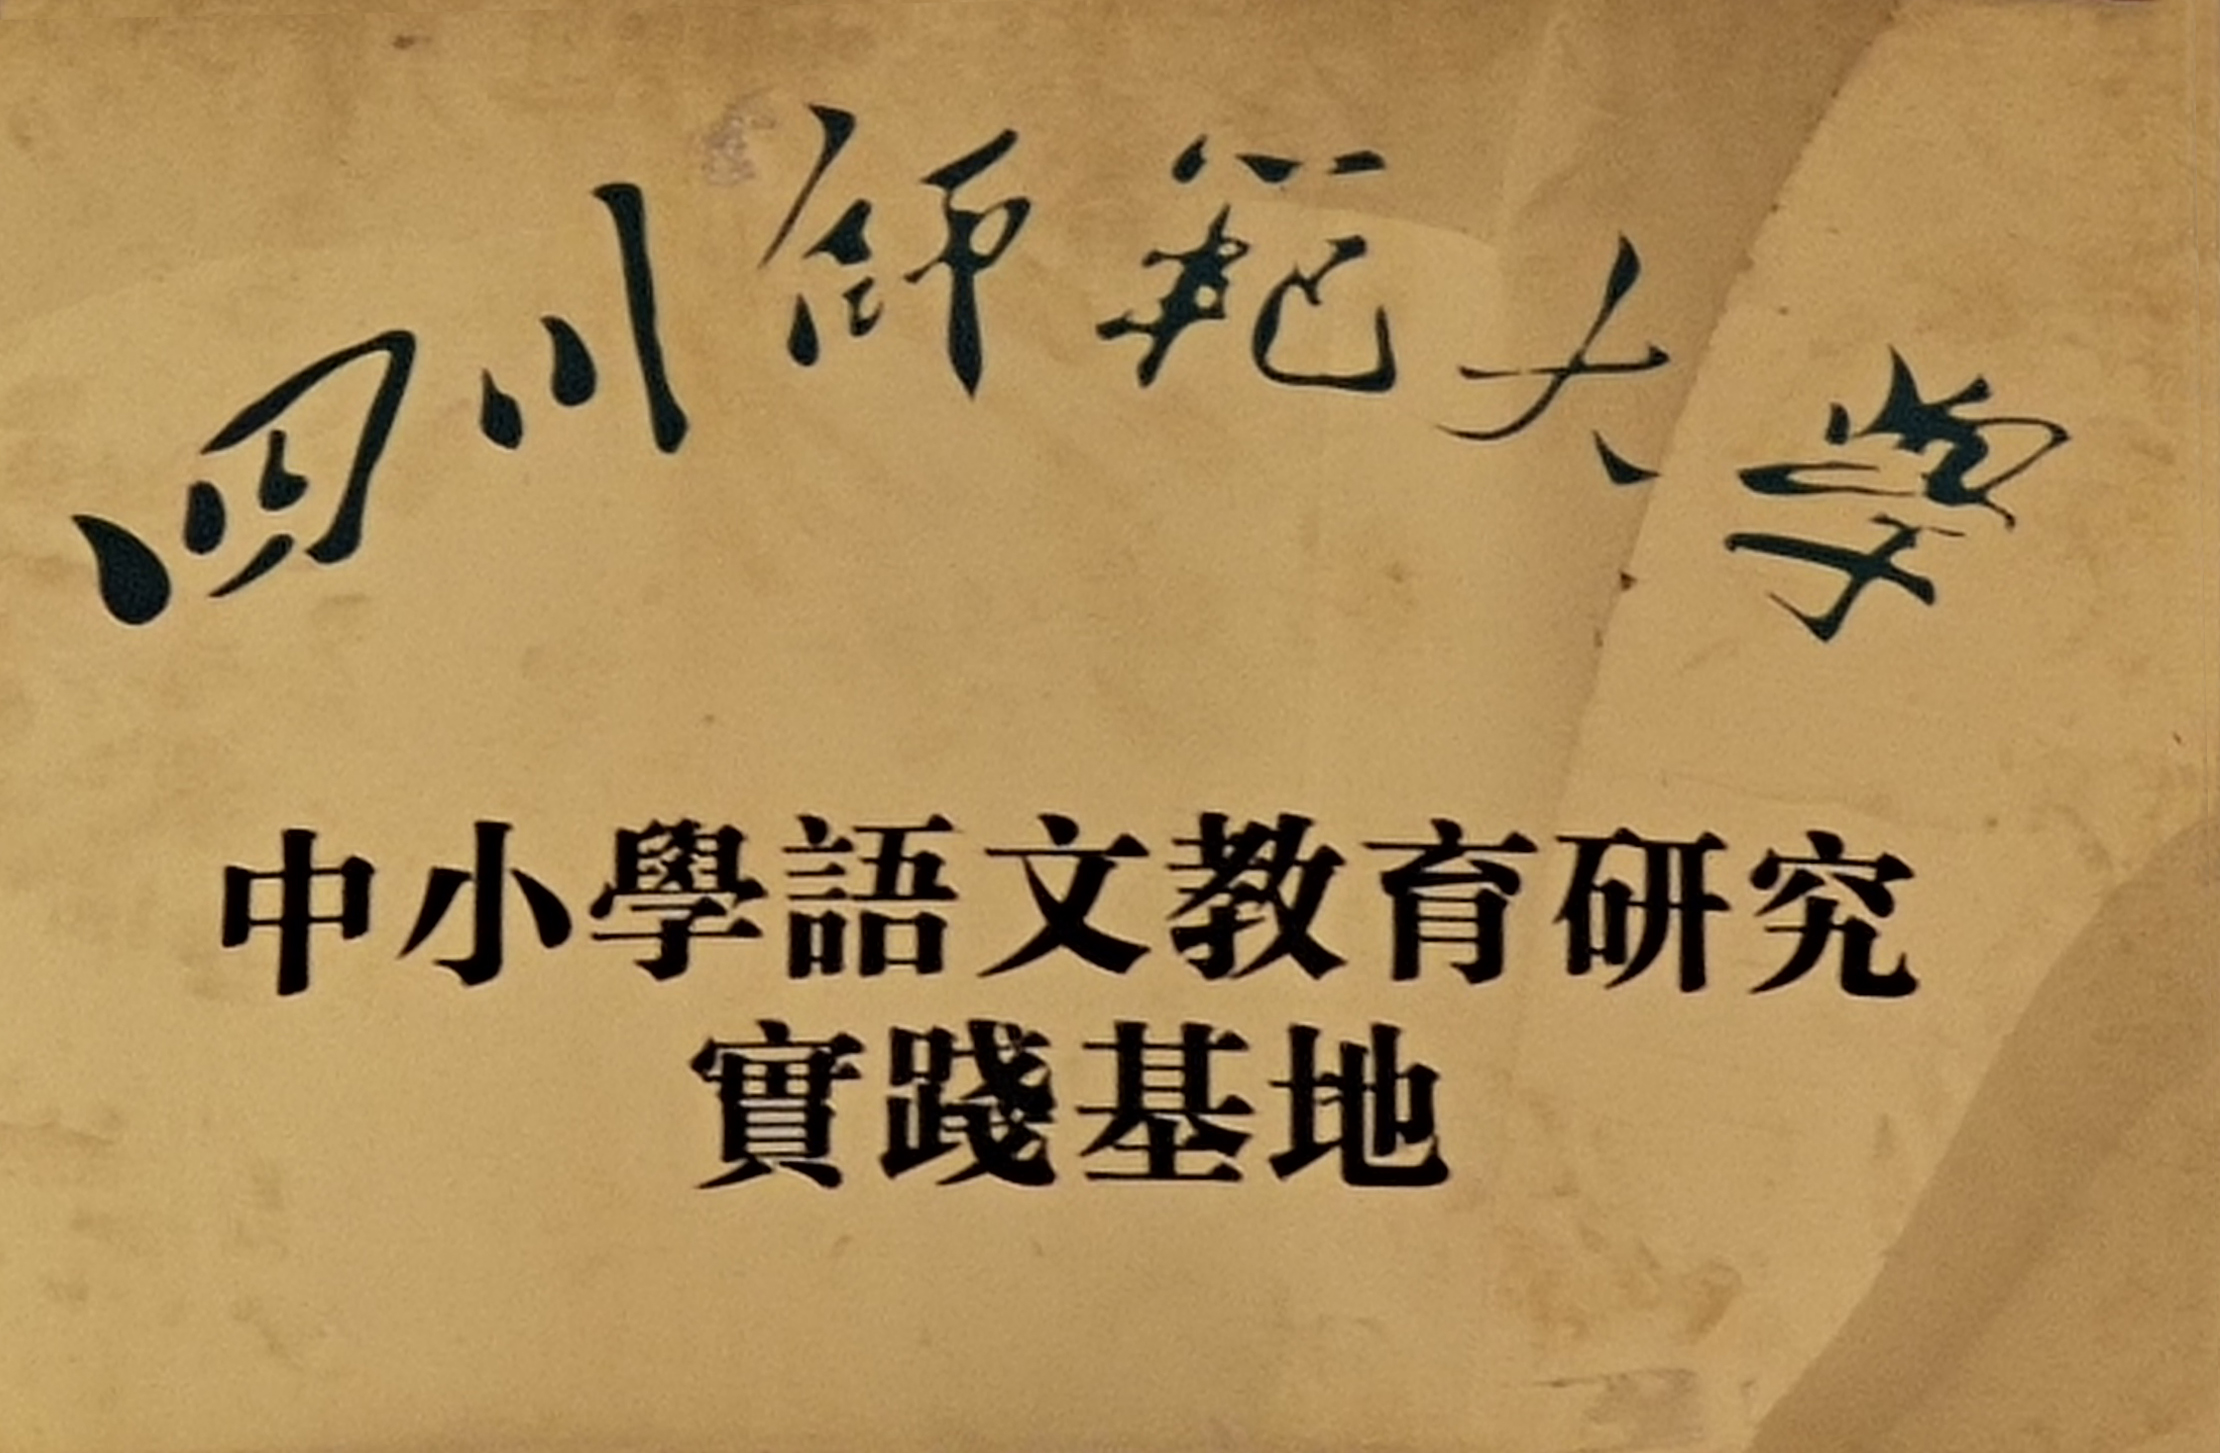 四川師範大學
中小學語文教育研究
實踐基地